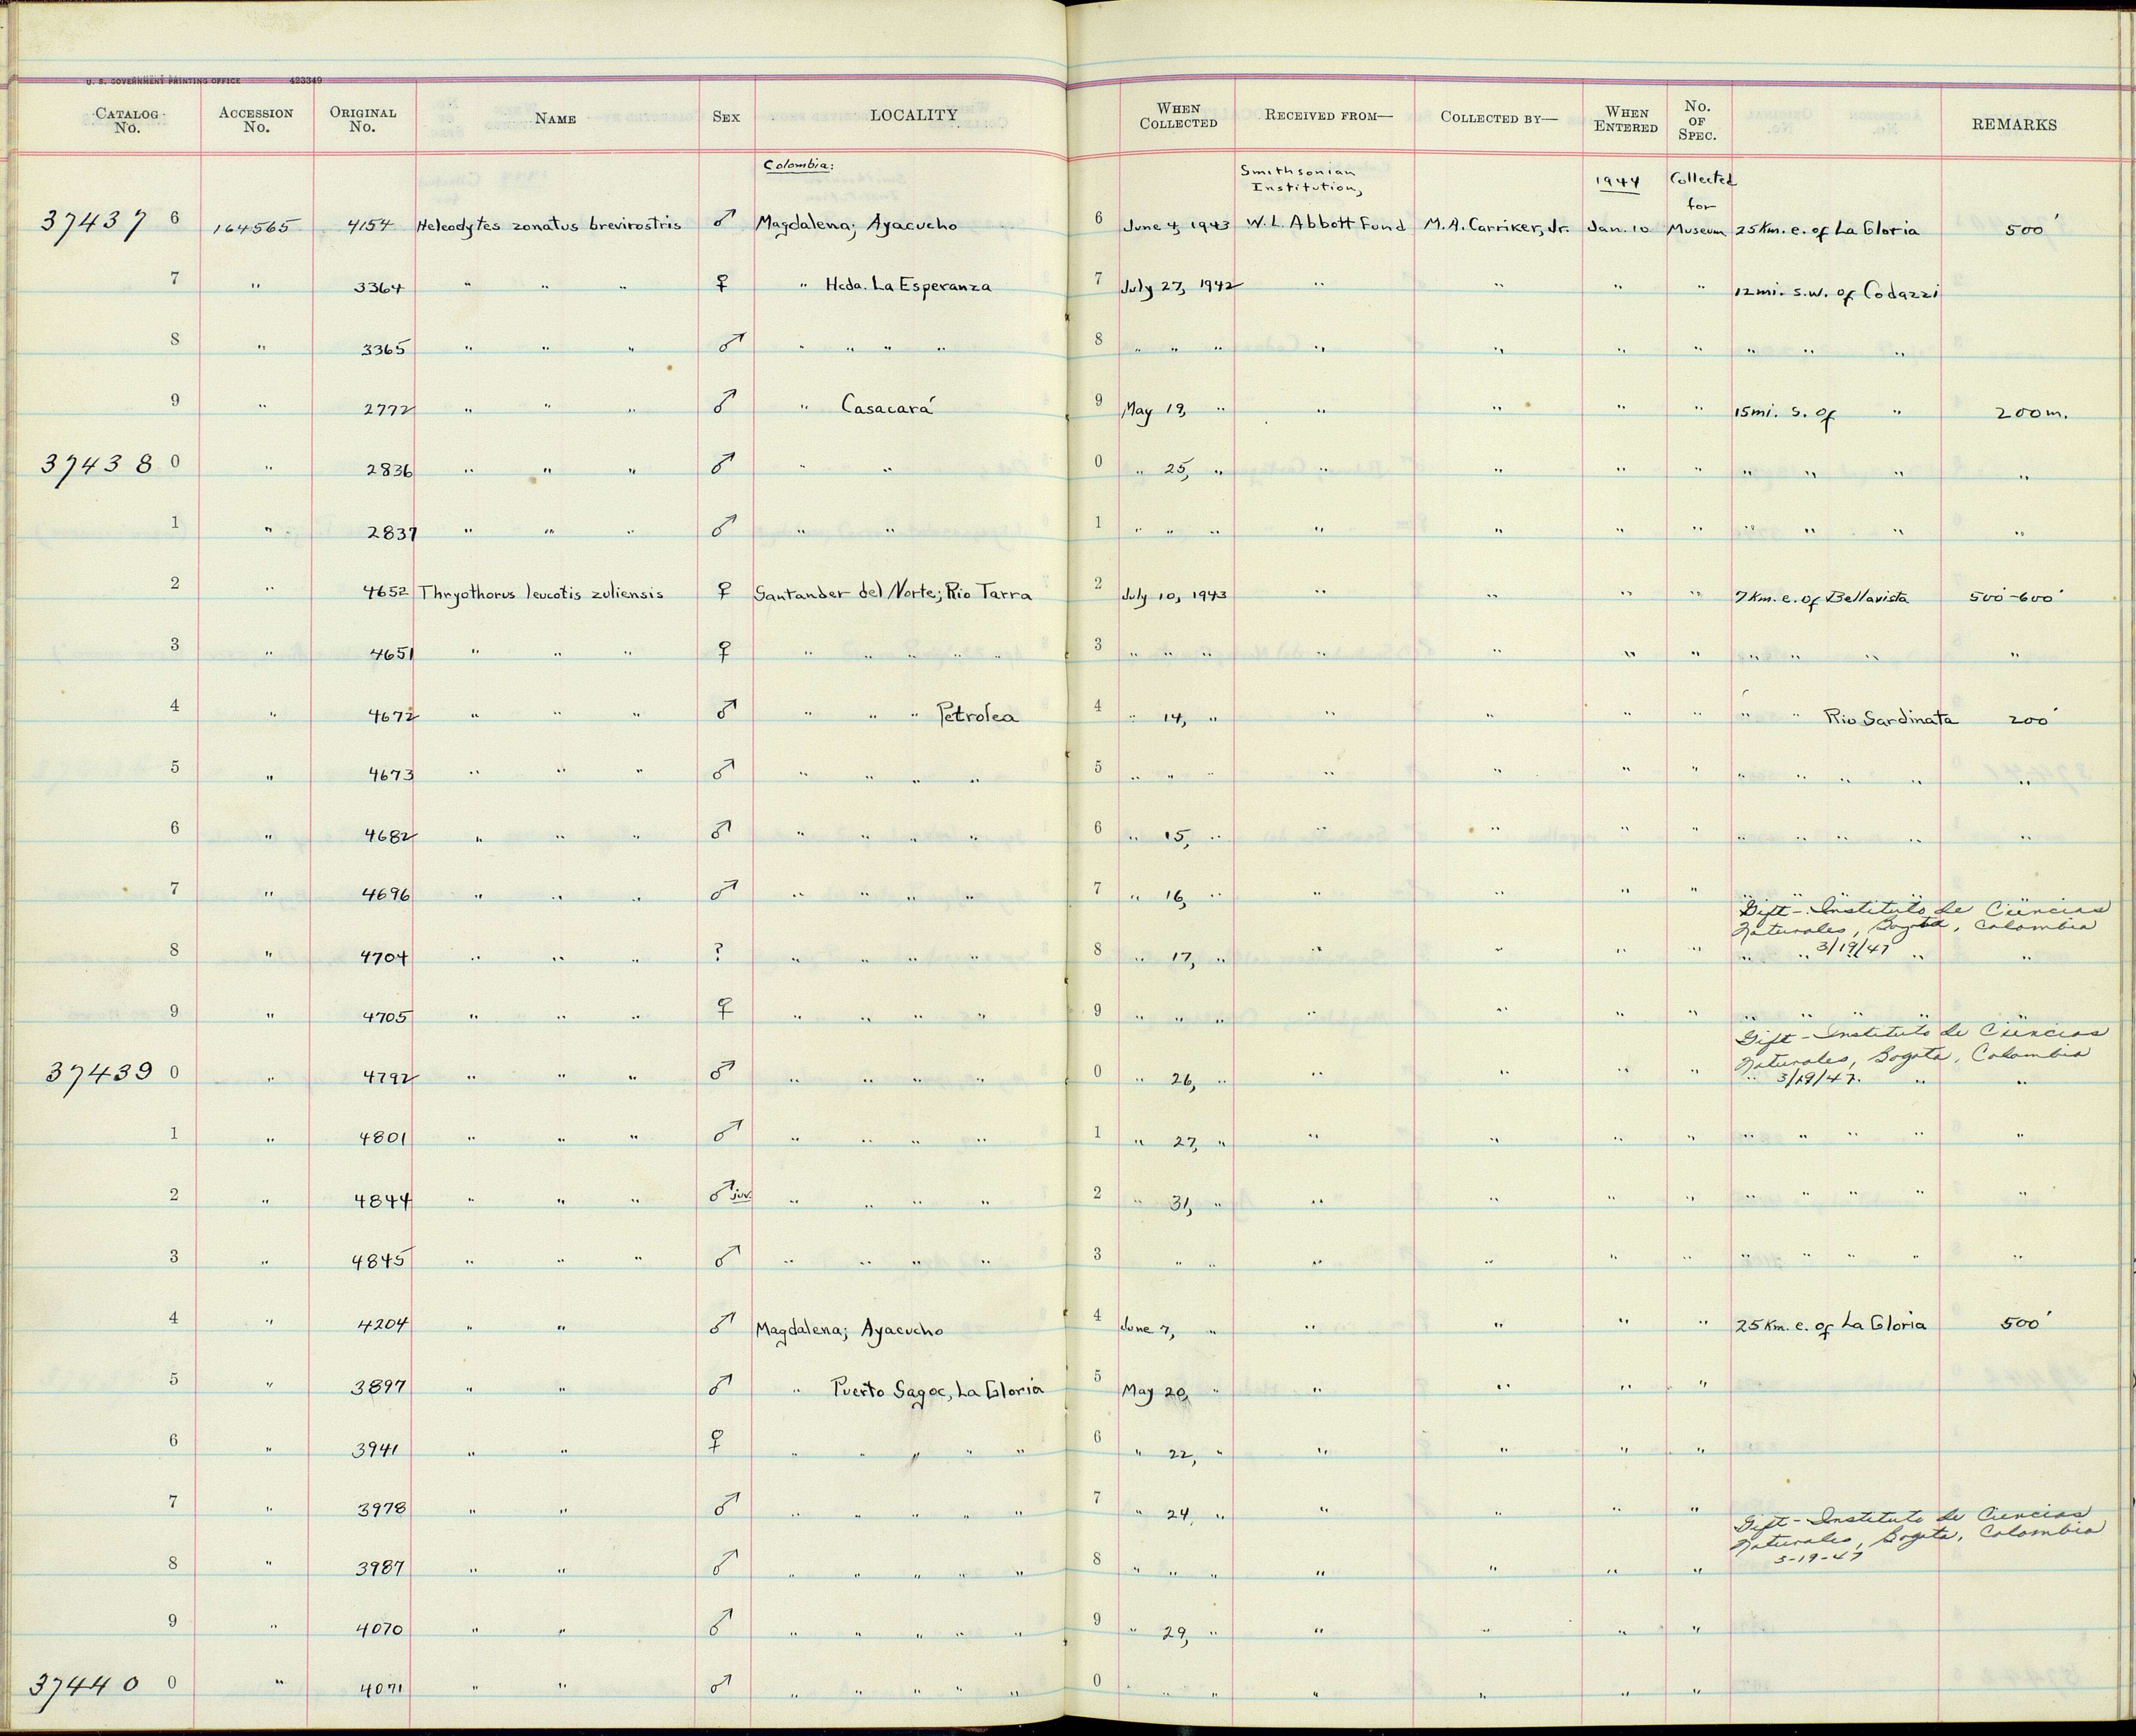 U. S. GOVERNMENT PRINTING OFFICE 423349
CATALOG No. ACCESSION No. ORIGINAL No. NAME SEX LOCALITY WHEN COLLECTED RECEIVED FROM— COLLECTED BY— WHEN ENTERED No. OF SPEC. REMARKS
Colombia: Smithsonian Institution, 1944 Collected for
37437 6 164565 4154 Heleodytes zonatus brevirostris ♂ Magdalena; Ayacucho 6 June 4, 1943 W. L. Abbott Fund M. A. Carriker, Jr. Jan. 10 Museum 25 Km. e. of La Gloria 500'
7 " 3364 " " " ♀ " Hcda. La Esperanza 7 July 27, 1942 " " " " 12 mi. s.w. of Codazzi
8 " 3365 " " " ♂ " " " " 8 " " " " " " " " " "
9 " 2772 " " " ♂ " Casacará 9 May 19, " " " " " 15 mi. s. of " 200 m.
37438 0 " 2836 " " " ♂ " " 0 " 25, " " " " " " " " "
1 " 2837 " " " ♂ " " 1 " " " " " " " " " " "
2 " 4652 Thryothorus leucotis zuliensis ♀ Santander del Norte; Rio Tarra 2 July 10, 1943 " " " " 7 Km. e. of Bellavista 500'-600'
3 " 4651 " " " ♀ " " " " " 3 " " " " " " " " " " "
4 " 4672 " " " ♂ " " " Petrolea 4 " 14, " " " " " " " Rio Sardinata 200'
5 " 4673 " " " ♂ " " " " 5 " " " " " " " " " " " "
6 " 4682 " " " ♂ " " " " 6 " 15, " " " " " " " " " "
7 " 4696 " " " ♂ " " " " 7 " 16, " " " " " " " " "
Gift - Instituto de Ciencias
Naturales, Bogotá, Colombia
8 " 4704 " " " ? " " " " 8 " 17, " " " " " " " 3/19/47 " "
9 " 4705 " " " ♀ " " " " 9 " " " " " " " " " " "
Gift - Instituto de Ciencias
Naturales, Bogota, Colombia
37439 0 " 4792 " " " ♂ " " " " 0 " 26, " " " " " " 3/19/47. " "
1 " 4801 " " " ♂ " " " " 1 " 27, " " " " " " " " " "
2 " 4844 " " " ♂ juv. " " " " 2 " 31, " " " " " " " " " "
3 " 4845 " " " ♂ " " " " 3 " " " " " " " " " " "
4 " 4204 " " ♂ Magdalena; Ayacucho 4 June 7, " " " " " 25 Km. e. of La Gloria 500'
5 " 3897 " " ♂ " Puerto Sagoc, La Gloria 5 May 20, " " " " "
6 " 3941 " " ♀ " " " " " 6 " 22, " " " " "
7 " 3978 " " ♂ " " " " " 7 " 24, " " " " "
Gift - Instituto de Ciencias
Naturales, Bogota, Colombia
8 " 3987 " " ♂ " " " " " 8 " " " " " " " 3-19-47
9 " 4070 " " ♂ " " " " " 9 " 29, " " " " "
37440 0 " 4071 " " ♂ " " " " " 0 " " " " " " "